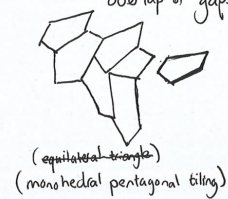 overlap or gaps
(equilateral triangle)
(monohedral pentagonal tiling)